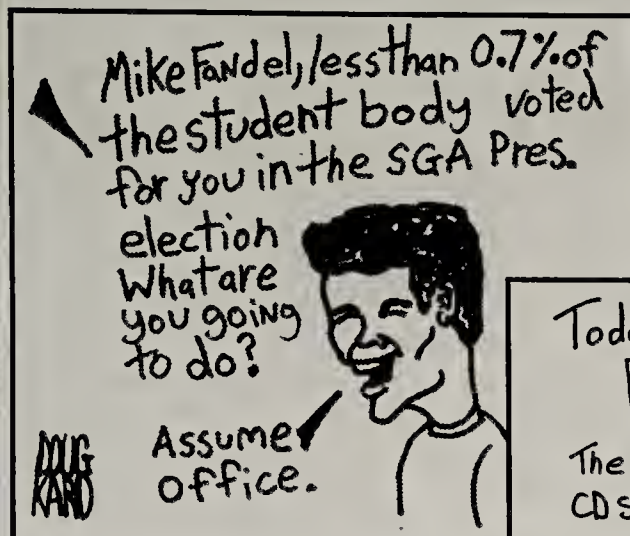 Mike Fandel, less than 0.7% of
the student body voted
for you in the SGA Pres.
election
What are
you going
to do?
Assume
office.
DOUG
KARD
The
CD S